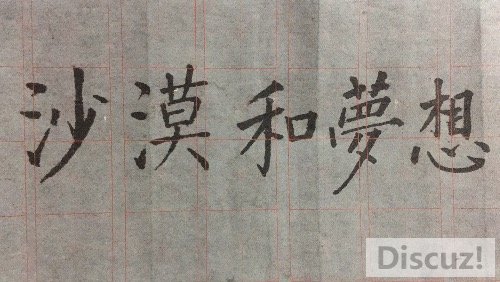 沙漠和夢想
Discuz!